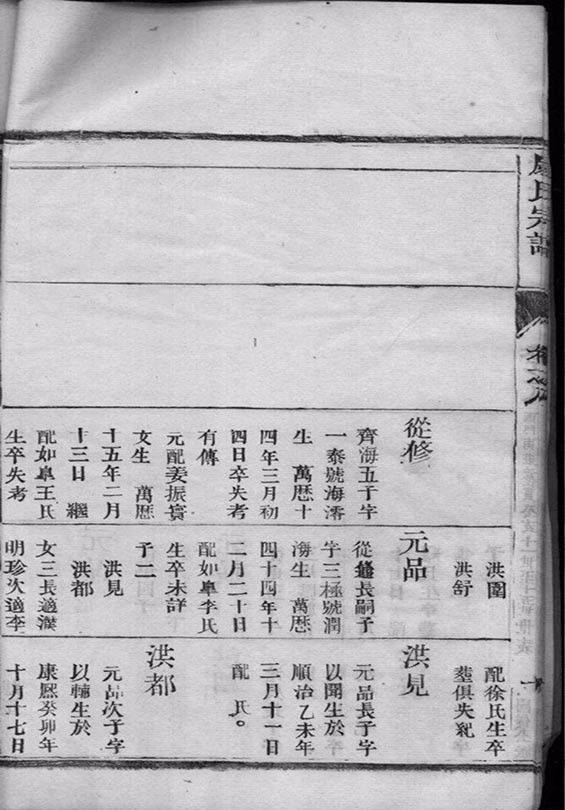 氏宗譜
卷之八
十
從修
齊海五子字
一泰號海澪
生 萬曆十
四年三月初
四日卒失考
有傳
元配姜振寰
女生 萬曆
十五年二月
十三日 繼
配如皋王氏
生卒失考
洪圖
洪舒
元品
從長嗣子
字三極號潤
海生 萬曆
四十四年十
二月二十日
配如皋李氏
生卒未詳
子二
洪見
洪都
女三長適濮
明珍次適李
配徐氏生卒
塟俱失紀
洪見
元品長子字
以聞生於
順治乙未年
三月十一日
配 氏。
洪都
元品次子字
以輔生於
康熙癸卯年
十月十七日